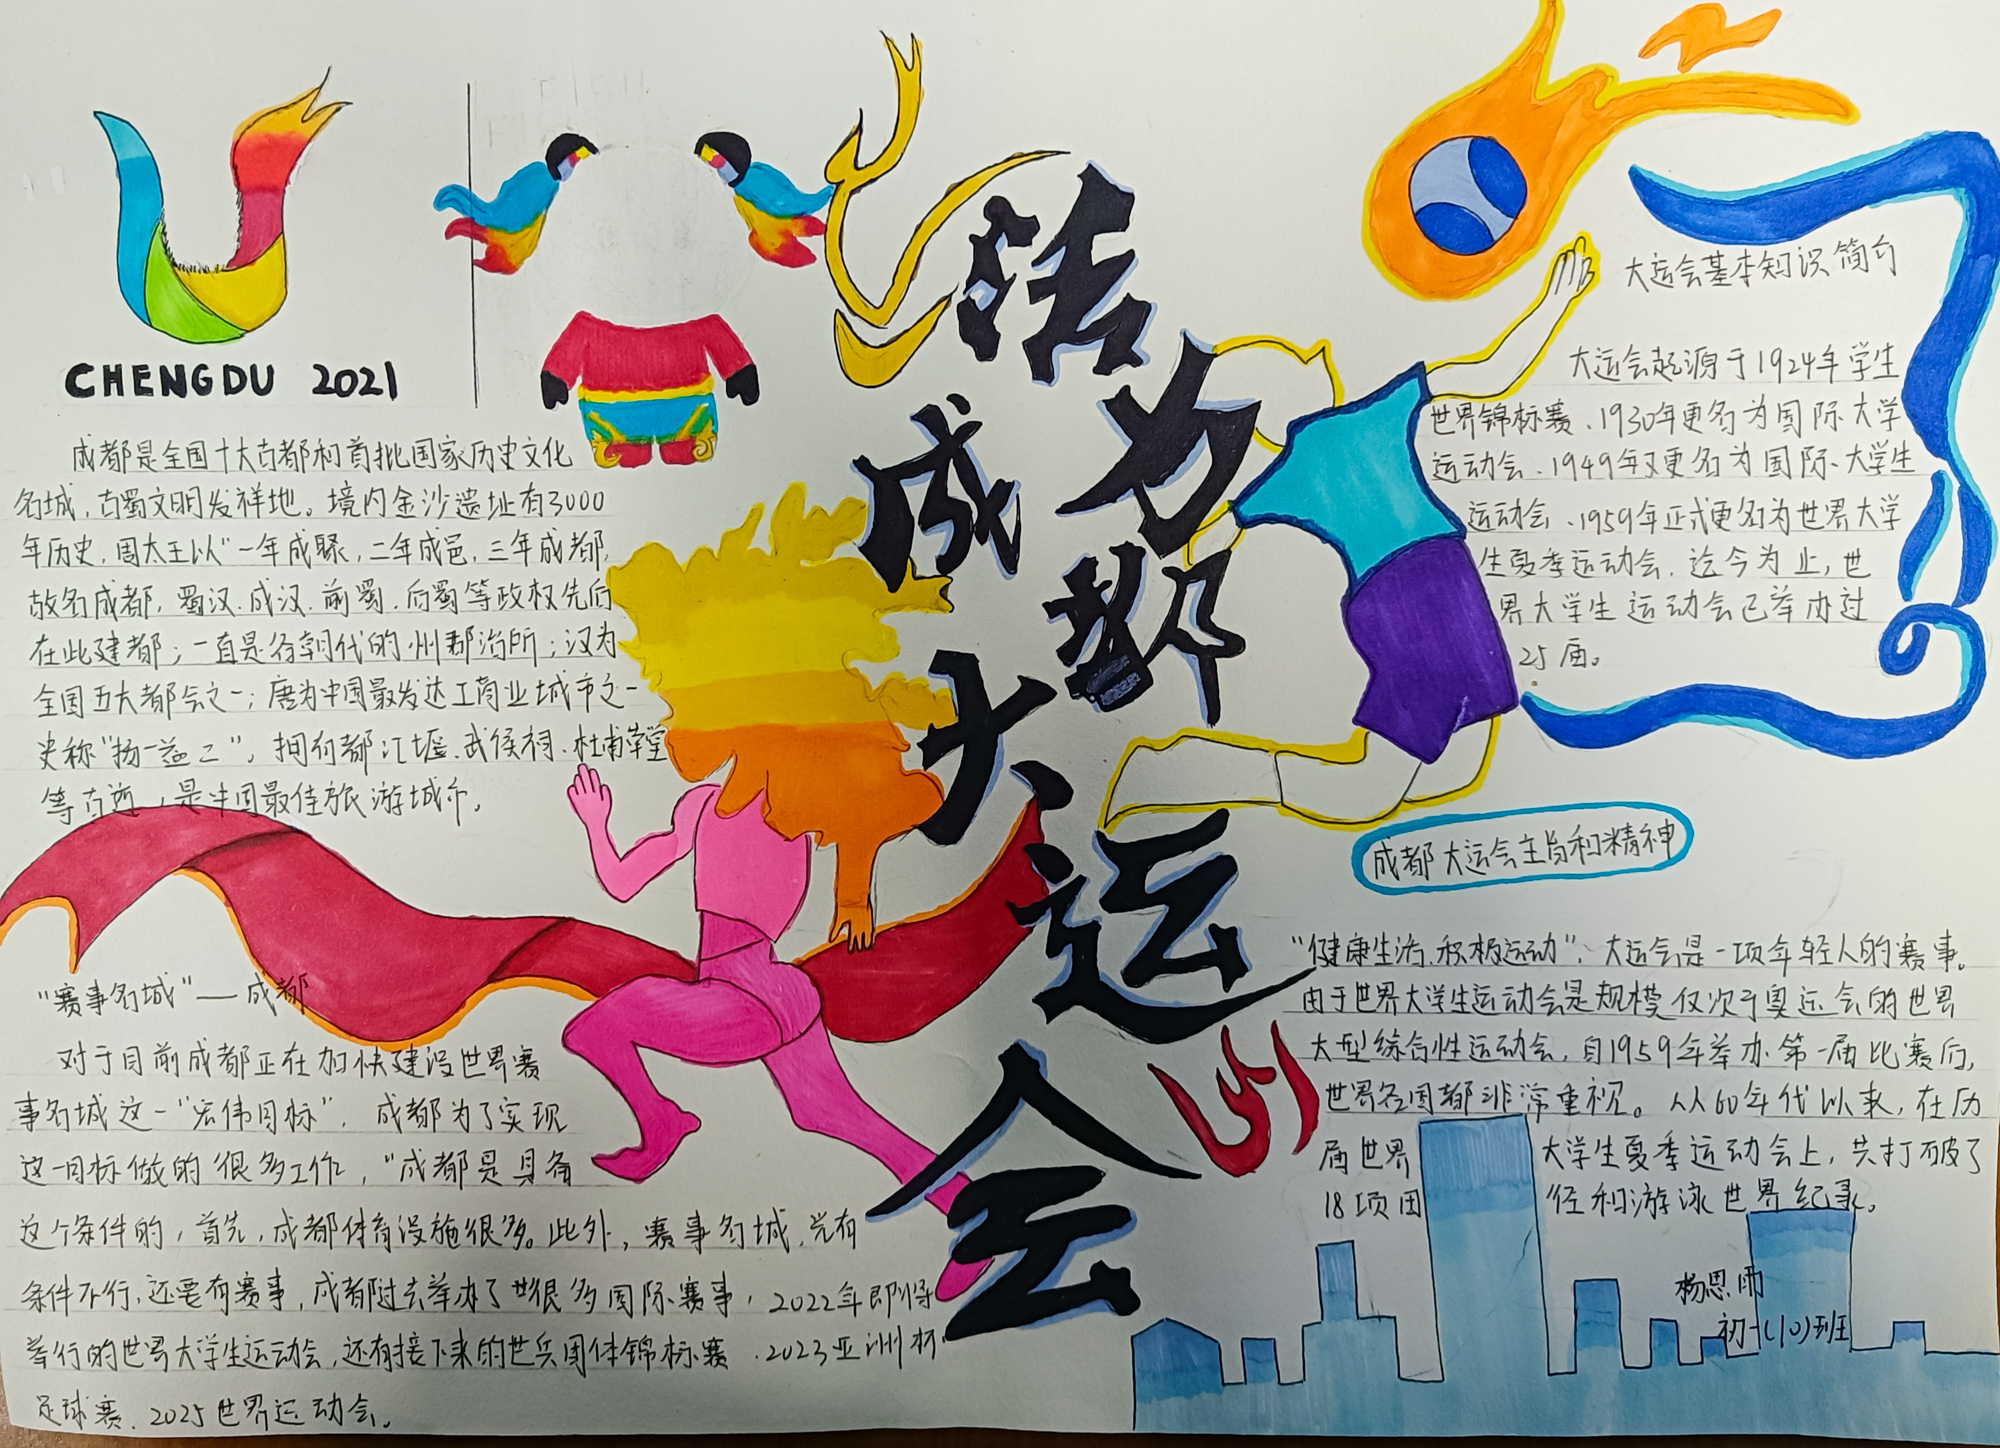 CHENGDU 2021
成都是全国十大古都和首批国家历史文化
名城，古蜀文明发祥地。境内金沙遗址有3000
年历史，周太王以“一年成聚，二年成邑，三年成都，
故名成都，蜀汉.成汉.前蜀.后蜀等政权先后
在此建都；一直是各朝代的州郡治所；汉为
全国五大都会之一；唐为中国最发达工商业城市之一
史称“扬一益二”，拥有都江堰.武侯祠.杜甫草堂
等古迹，是中国最佳旅游城市。
“赛事名城”—成都
对于目前成都正在加快建设世界赛
事名城这一“宏伟目标”，成都为了实现
这一目标做的很多工作，“成都是具备
这个条件的，首先，成都体育设施很多。此外，赛事名城，光有
条件不行，还要有赛事，成都过去举办了很多国际赛事，2022年即将
举行的世界大学生运动会，还有接下来的世乒团体锦标赛.2023亚洲杯
足球赛.2025世界运动会。
活力成都大运会
大运会基本知识简介
大运会起源于1924年学生
世界锦标赛.1930年更名为国际大学
运动会.1949年又更名为国际大学生
运动会.1959年正式更名为世界大学
生夏季运动会.迄今为止，世
界大学生运动会已举办过
25届。
成都大运会主旨和精神
“健康生活.积极运动”，大运会是一项年轻人的赛事。
由于世界大学生运动会是规模仅次于奥运会的世界
大型综合性运动会，自1959年举办第一届比赛后，
世界各国都非常重视。从60年代以来，在历
届世界大学生夏季运动会上，共打破了
18项田径和游泳世界纪录。
杨思雨
初一(10)班